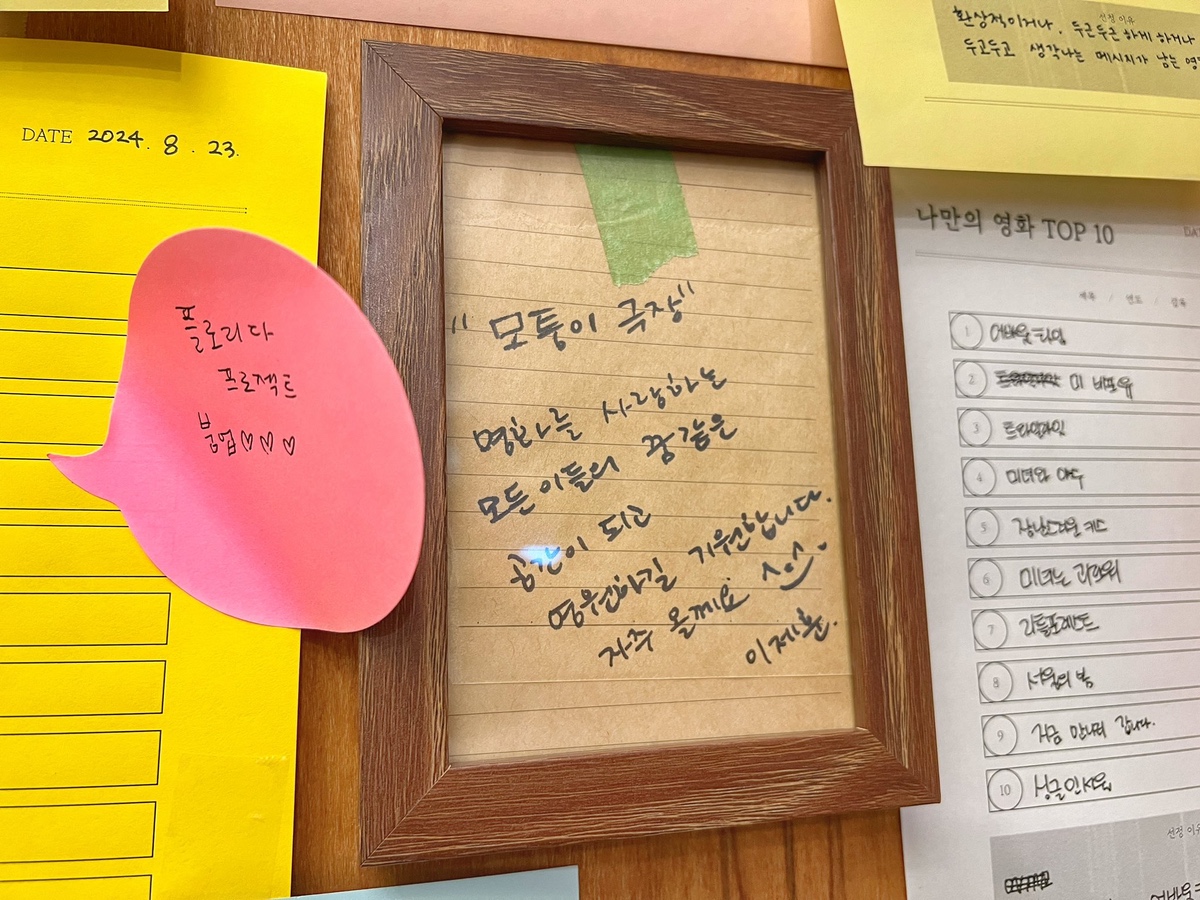 DATE 2024. 8. 23.
플로리다
프로젝트
붐업♡♡♡
"모퉁이 극장"
영화를 사랑하는
모든 이들의 꿈같은
공간이 되고
영원하길 기원합니다.
자주 올께요 ^o^
이제훈.
선정 이유
환상적이거나, 두근두근하게 하거나
두고두고 생각나는 메시지가 남는 영
나만의 영화 TOP 10
제목 / 연도 / 감독
1 어바웃타임
2 미 비포유
3 트와일라잇
4 미녀와 야수
5 장난스러운 키스
6 미녀는 괴로워
7 리틀포레스트
8 서울의 봄
9 지금 만나러 갑니다.
10 싱글인서울
선정 이유
어바웃